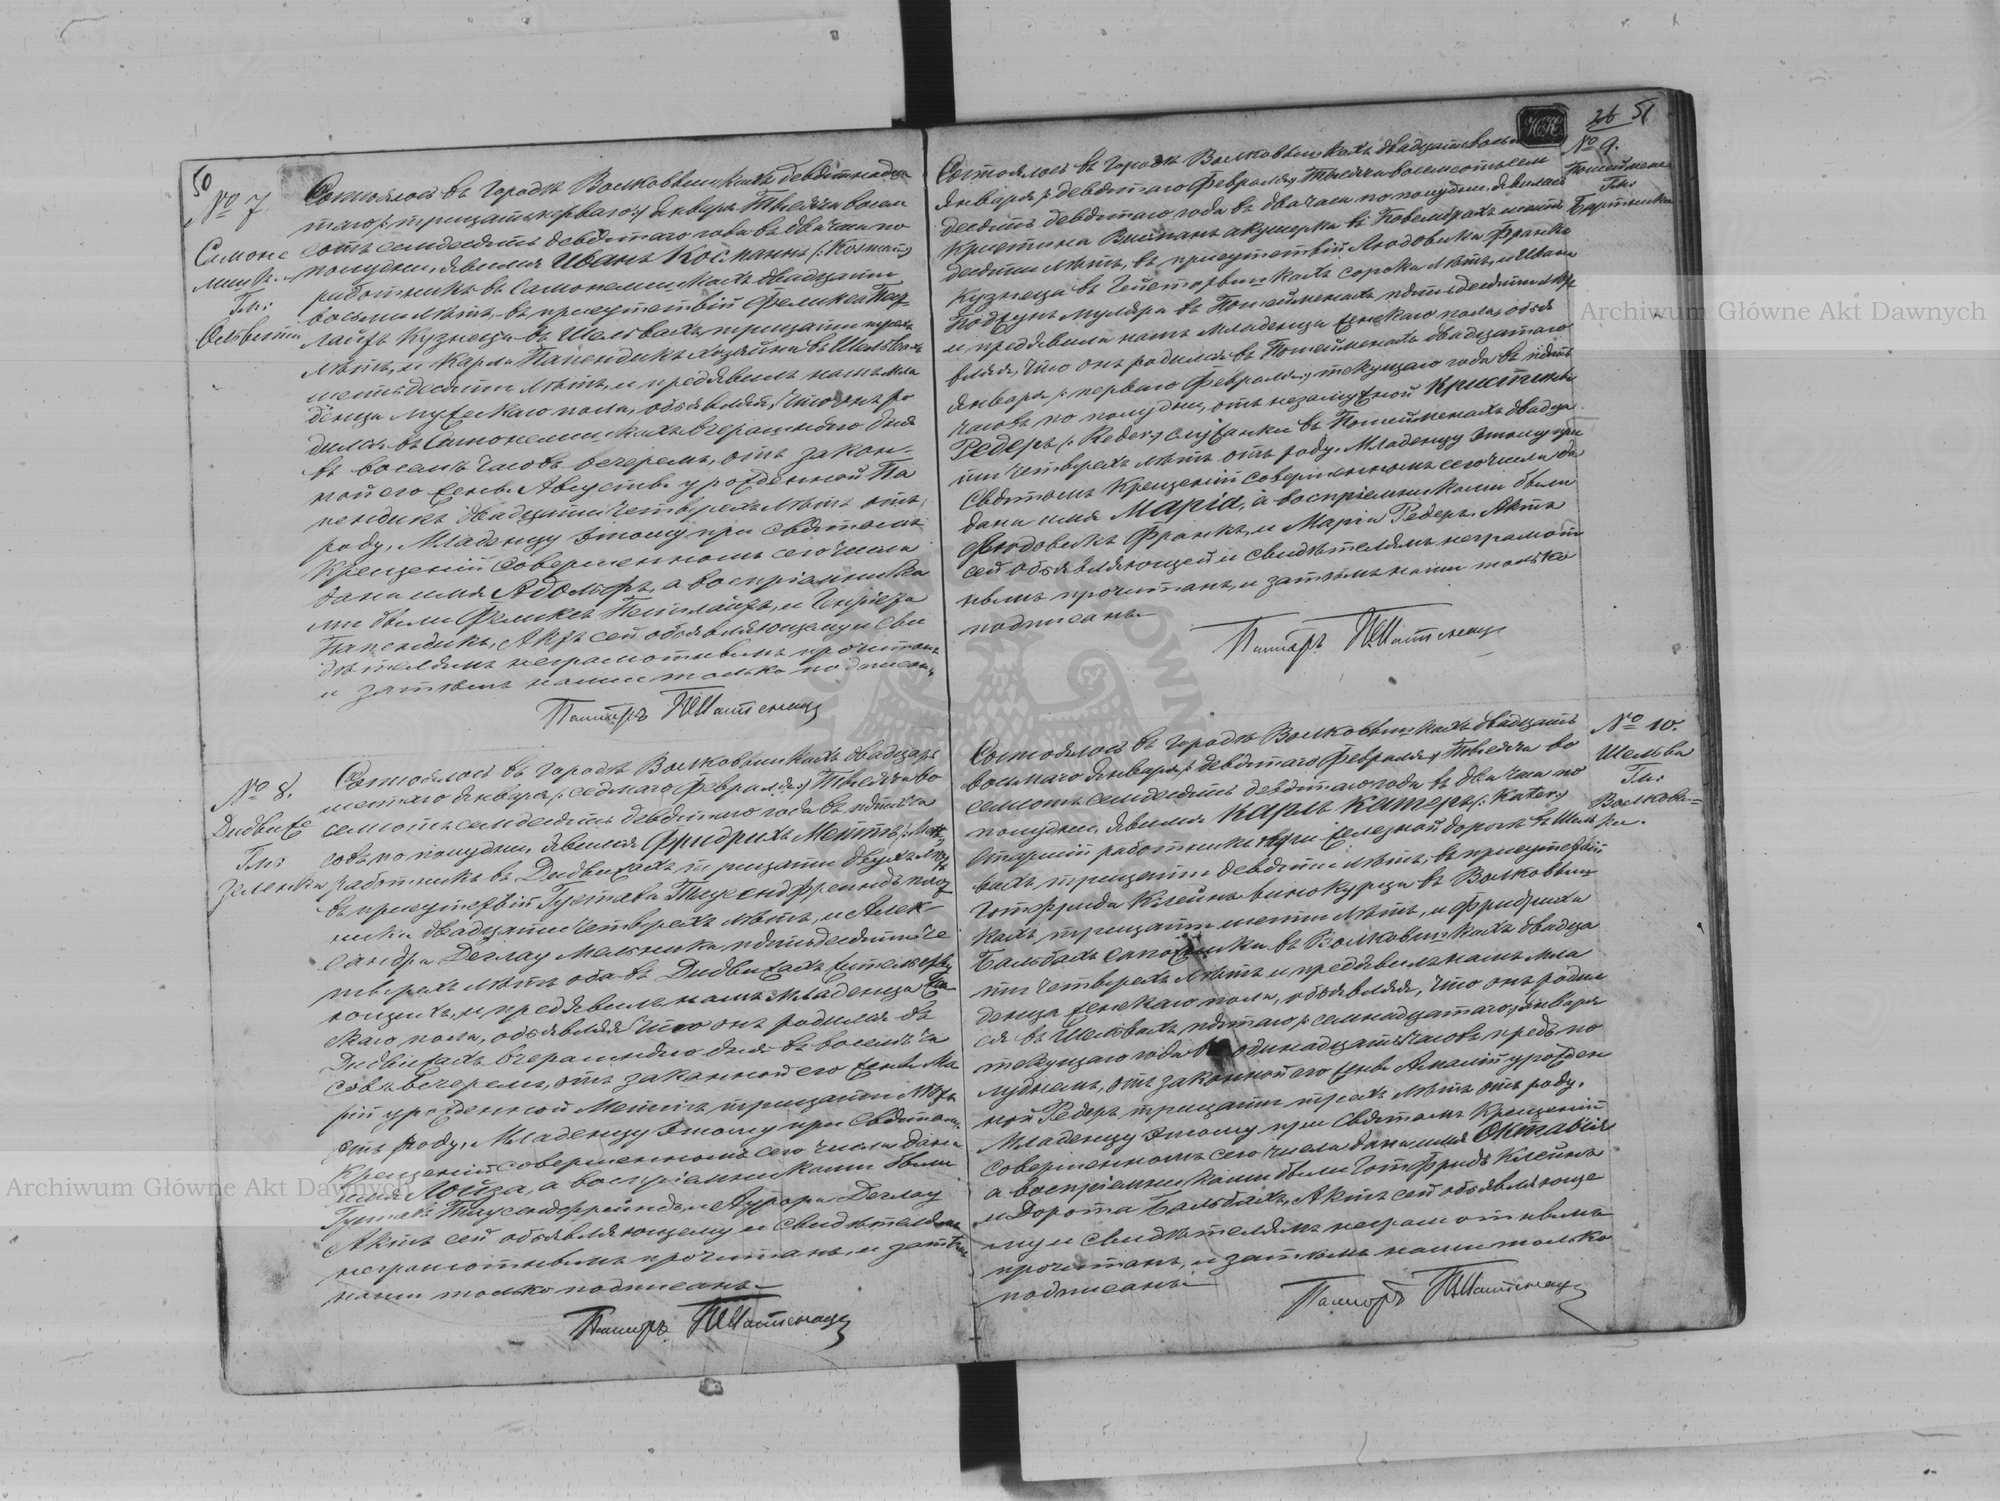 50
№ 7
Самоне
лишки.
Гм:
Ольвита
Состоялось въ городѣ Волковышкахъ девятнадца
таго /: тридцать перваго :/ Января тысяча восем
сотъ семьдесятъ девятаго года въ два часа по
полудни, явился Иванъ Косманнъ /: Kosmann :/
работникъ въ Самонелишкахъ двадцати
восьми лѣтъ, въ присутствіи Феликса
кузнеца въ Шельвахъ тридцати трехъ
лѣтъ, и Карла Папендикъ хозяина въ Шельвахъ
шестьдесяти лѣтъ, и предъявилъ намъ мла
денца мужескаго пола, объявляя, что онъ ро
дился въ Самонелишкахъ вчерашняго дня
въ восемь часовъ вечеромъ, отъ закон-
ной его жены Августы урожденной Па
пендикъ двадцати четырехъ лѣтъ отъ
роду. Младенцу этому при святомъ
Крещеніи совершенномъ сего числа
дано имя Адольфъ, а воспріемника
ми были Феликсъ и
Папендикъ. Актъ сей объявляющему и сви
дѣтелямъ неграмотнымъ прочитанъ
и затѣмъ нами только подписанъ.
Пасторъ
№ 8.
Дидвиже
Гм:
Зеленка
Состоялось въ городѣ Волковышкахъ двадцать
шестаго Января /: седмаго Февраля :/ тысяча во
семсотъ семдесятъ девятаго года въ пять ча
совъ по полудни, явился Фридрихъ
работникъ въ Дидвижахъ тридцати двухъ лѣтъ
въ присутствіи Густава Таусендфрейндъ
двадцати четырехъ лѣтъ, и Алек-
сандра Деглау мельника пятьдесяти че
тырехъ лѣтъ оба въ Дидвижахъ
и предъявилъ намъ младенца жен
скаго пола, объявляя что онъ родился въ
Дидвижахъ вчерашняго дня въ восемь ча
совъ вечеромъ, отъ законной его жены Ма
ріи урожденной тридцати лѣтъ
отъ роду. Младенцу этому при святомъ
Крещеніи совершенномъ сего числа дано
имя Лоиза, а воспріемниками были
Густавъ Таусендфрейндъ, и Аурора Деглау
Актъ сей объявляющему и свидѣтелямъ
неграмотнымъ прочитанъ, и затѣмъ
нами только подписанъ.
Пасторъ
НК
26 51
№ 9.
Гм:
Бартники
Состоялось въ городѣ Волковышкахъ двадцать восьм
Января /: девятаго Февраля :/ тысяча восемсотъ сем
десятъ девятаго года въ два часа по полудни, явилась
Кристина акушерка въ шести
десяти лѣтъ, въ присутствіи Людовика Франкъ
кузнеца въ сорока лѣтъ, и Ивана
муляра въ Пошейменахъ пятьдесяти лѣтъ
и предъявила намъ младенца женскаго пола, объя
вляя, что онъ родился въ Пошейменахъ двадцатаго
Января /: перваго Февраля :/ текущаго года въ пять
часовъ по полудни, отъ незамужной Кристины
Редеръ /: Reder :/ служанки въ Пошейменахъ двадца
ти четырехъ лѣтъ отъ роду. Младенцу этому при
Святомъ Крещеніи совершенномъ сего числа да
дано имя Марія, а воспріемниками были
Людовикъ Франкъ, и Марія Редеръ. Актъ
сей объявляющей и свидѣтелямъ неграмот
нымъ прочитанъ, и затѣмъ нами только
подписанъ.
Пасторъ
№ 10.
Шельва
Гм:
Волковы=
шки.
Состоялось въ городѣ Волковышкахъ двадцать
восьмаго Января /: девятаго Февраля :/ тысяча во
семсотъ семдесятъ девятаго года въ два часа по
полудни, явился Карлъ Катеръ /: Kater :/
старшій работникъ при желѣзной дорогѣ въ Шель
вахъ тридцати девяти лѣтъ, въ присутствіи
Готфрида Клейнъ винокурца въ Волковыш
кахъ тридцати шести лѣтъ, и Фридриха
Бальбахъ сапожника въ Волковышкахъ двадца
ти четырехъ лѣтъ и предъявилъ намъ мла
денца женскаго пола, объявляя, что онъ родил
ся въ Шельвахъ пятаго /: семнадцатаго :/ Января
текущаго года въ одинадцать часовъ предъ по
луднемъ, отъ законной его жены Амаліи урожден
ной Редеръ тридцати трехъ лѣтъ отъ роду.
Младенцу этому при Святомъ Крещеніи
совершенномъ сего числа дано имя Октавія
а воспріемниками были Готфридъ Клейнъ
и Дорота Бальбахъ. Актъ сей объявляюще
му и свидѣтелямъ неграмотнымъ
прочитанъ, и затѣмъ нами только
подписанъ.
Пасторъ
Archiwum Główne Akt Dawnych
Archiwum Główne Akt Dawnych